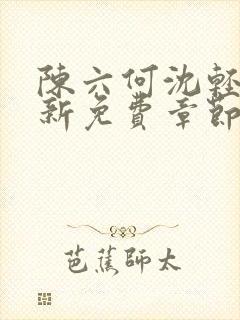 陳六何沈輕
新免費章節
芭蕉師太